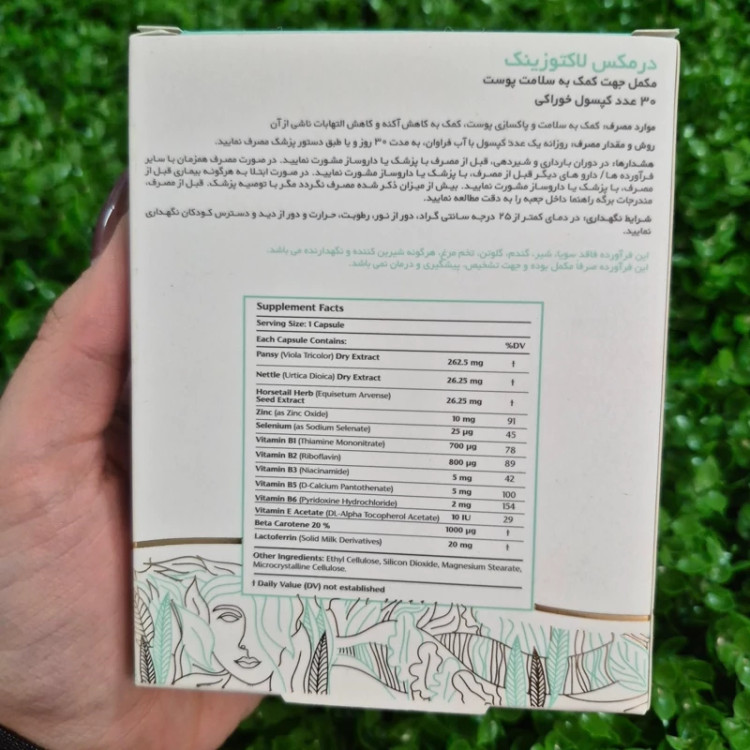 درمکس لاکتوزینک
مکمل جهت کمک به سلامت پوست
۳۰ عدد کپسول خوراکی
موارد مصرف: کمک به سلامت و پاکسازی پوست، کمک به کاهش آکنه و کاهش التهابات ناشی از آن
روش و مقدار مصرف: روزانه یک عدد کپسول با آب فراوان، به مدت ۳۰ روز و یا طبق دستور پزشک مصرف نمایید.
هشدارها: در دوران بارداری و شیردهی، قبل از مصرف با پزشک یا داروساز مشورت نمایید. در صورت مصرف همزمان با سایر
فرآورده ها / دارو های دیگر قبل از مصرف، با پزشک یا داروساز مشورت نمایید. در صورت ابتلا به هرگونه بیماری قبل از
مصرف، با پزشک یا داروساز مشورت نمایید. بیش از میزان ذکر شده مصرف نگردد مگر با توصیه پزشک. قبل از مصرف،
مندرجات برگه راهنما داخل جعبه را به دقت مطالعه نمایید.
شرایط نگهداری: در دمای کمتر از ۲۵ درجه سانتی گراد، دور از نور، رطوبت، حرارت و دور از دید و دسترس کودکان نگهداری
نمایید.
این فرآورده فاقد سویا، شیر، گندم، گلوتن، تخم مرغ، هرگونه شیرین کننده و نگهدارنده می باشد.
این فرآورده صرفا مکمل بوده و جهت تشخیص، پیشگیری و درمان نمی باشد.
Supplement Facts
Serving Size: 1 Capsule
Each Capsule Contains: %DV
Pansy (Viola Tricolor) Dry Extract 262.5 mg †
Nettle (Urtica Dioica) Dry Extract 26.25 mg †
Horsetail Herb (Equisetum Arvense)
Seed Extract 26.25 mg †
Zinc (as Zinc Oxide) 10 mg 91
Selenium (as Sodium Selenate) 25 µg 45
Vitamin B1 (Thiamine Mononitrate) 700 µg 78
Vitamin B2 (Riboflavin) 800 µg 89
Vitamin B3 (Niacinamide) 5 mg 42
Vitamin B5 (D-Calcium Pantothenate) 5 mg 100
Vitamin B6 (Pyridoxine Hydrochloride) 2 mg 154
Vitamin E Acetate (DL-Alpha Tocopherol Acetate) 10 IU 29
Beta Carotene 20 % 1000 µg †
Lactoferrin (Solid Milk Derivatives) 20 mg †
Other Ingredients: Ethyl Cellulose, Silicon Dioxide, Magnesium Stearate,
Microcrystalline Cellulose.
† Daily Value (DV) not established